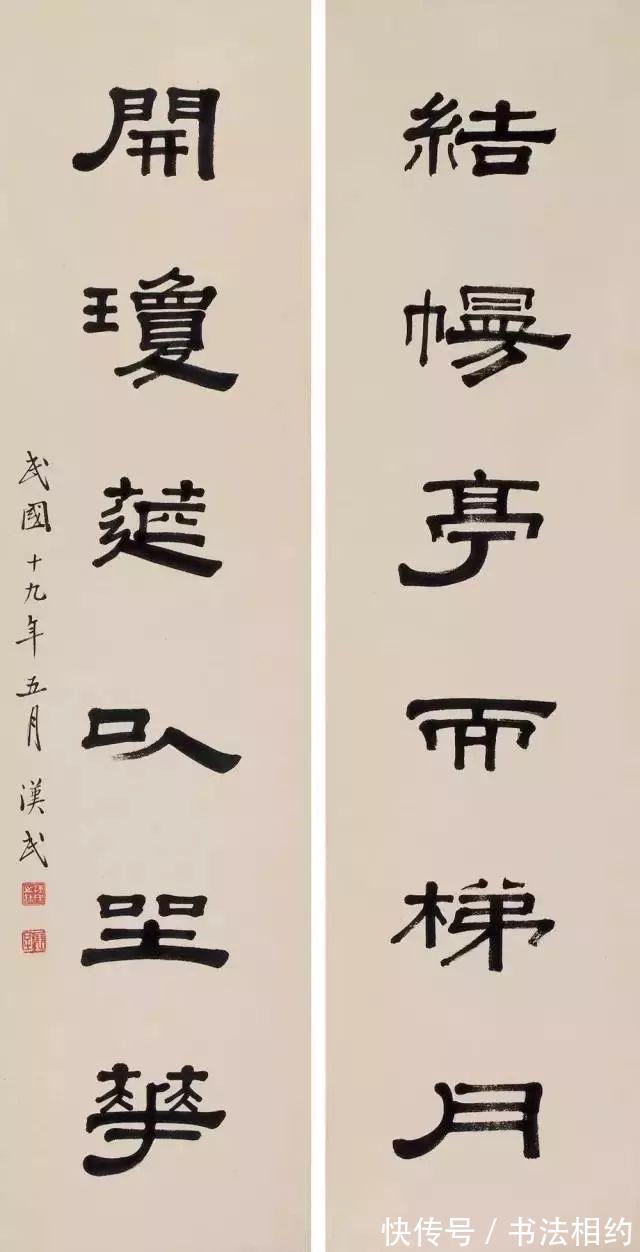 結幔亭而梯月
開瓊莚以坐華
民國十九年五月 漢民
快传号 / 书法相约